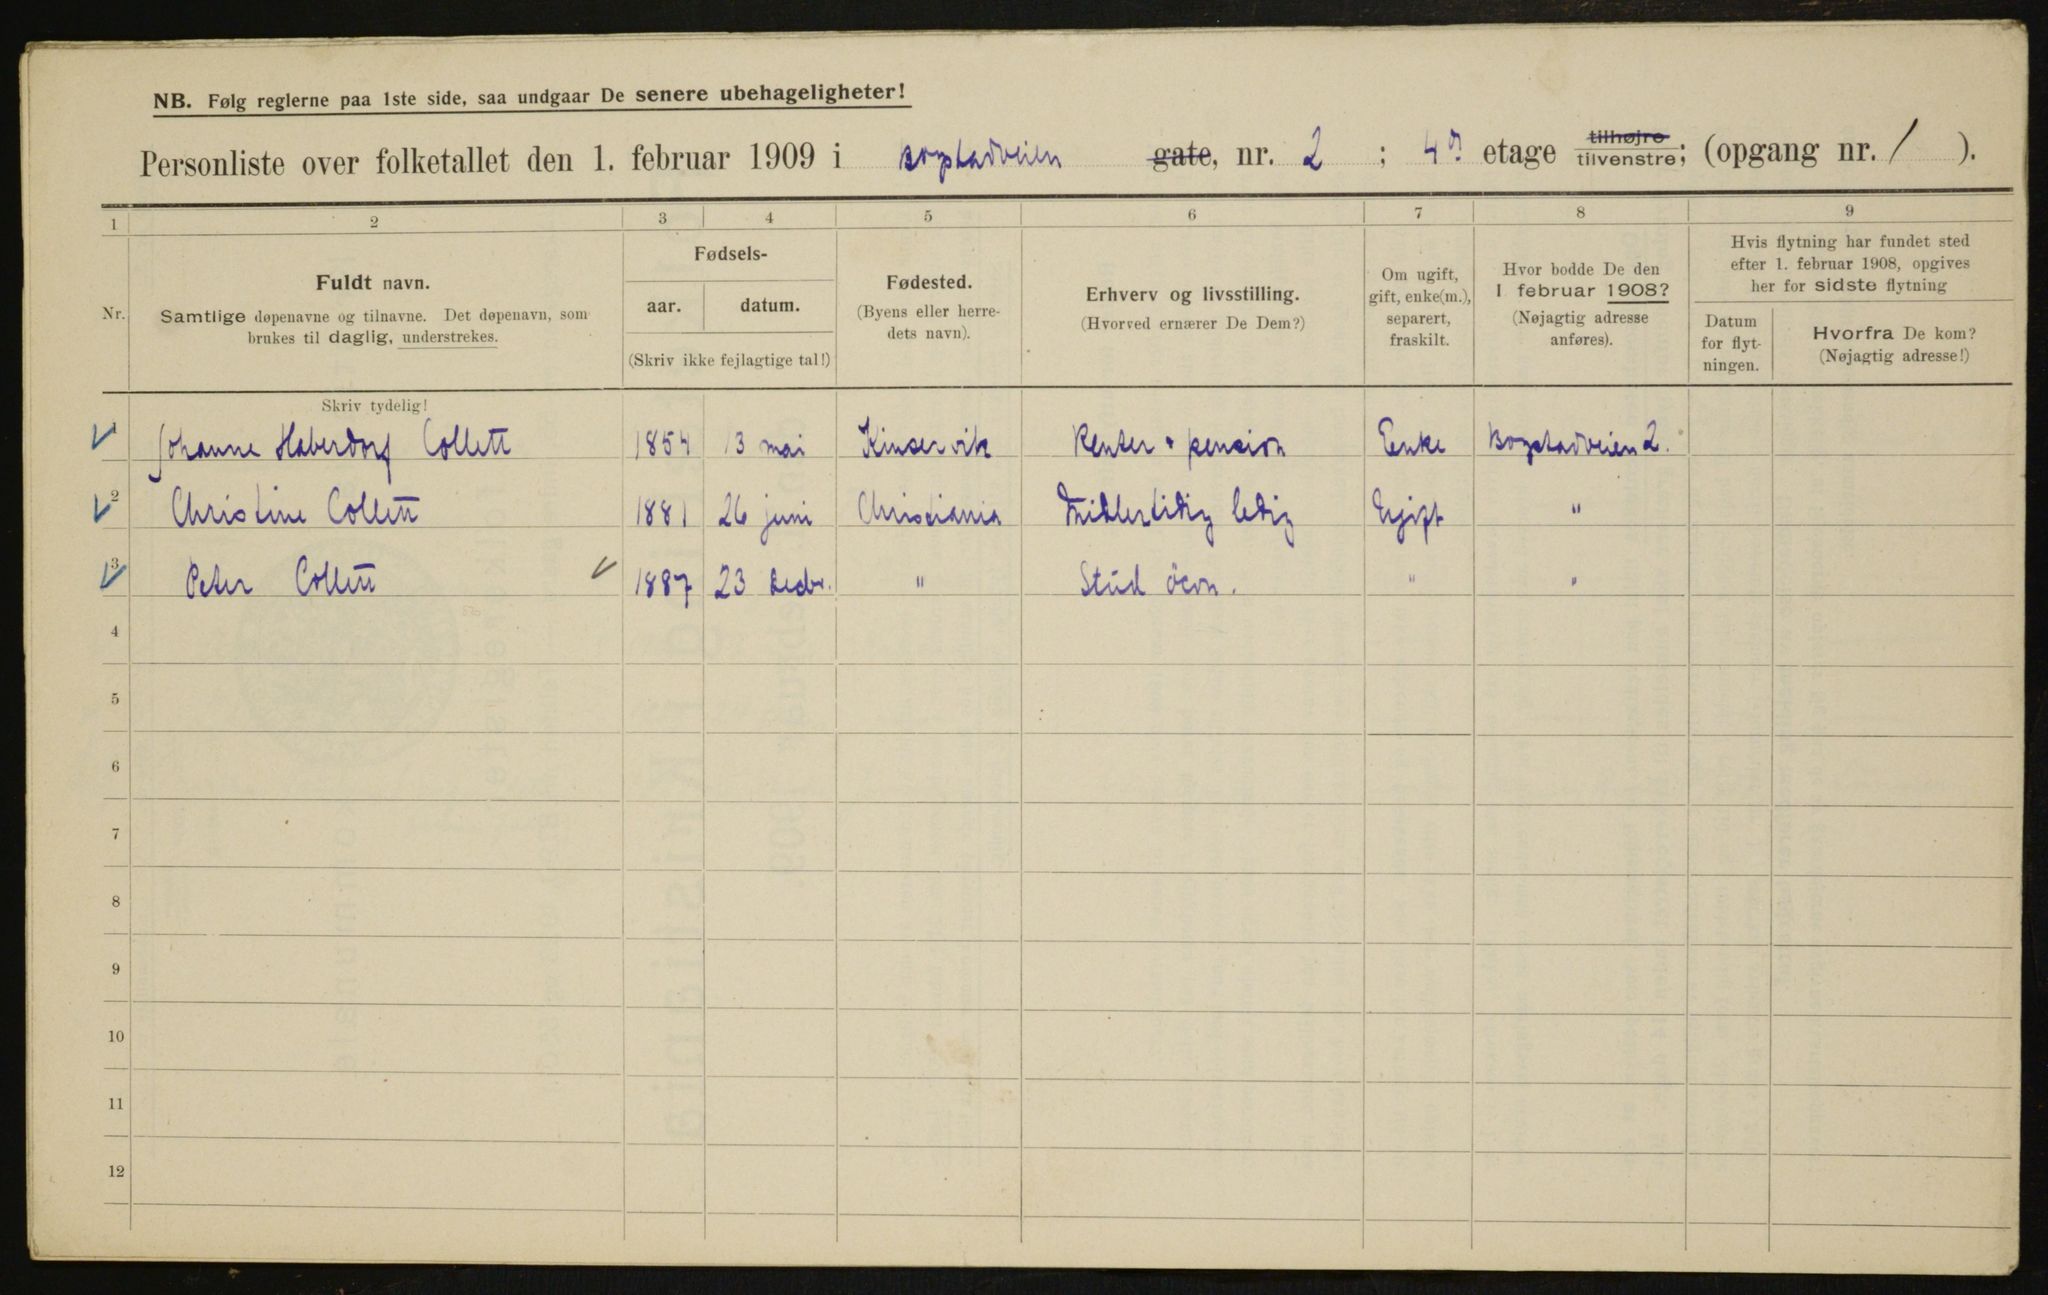 NB. Følg reglerne paa 1ste side, saa undgaar De senere ubehageligheter!
Personliste over folketallet den 1. februar 1909 i Bogstadveien gate, nr. 2 ; 4de etage tilhøjre tilvenstre; (opgang nr. 1 ).
1 2 3 4 5 6 7 8 9
Nr.
Fuldt navn.
Samtlige døpenavne og tilnavne. Det døpenavn, som
brukes til daglig, understrekes.
Fødsels-
aar. datum.
(Skriv ikke fejlagtige tal!)
Fødested.
(Byens eller herre-
dets navn).
Erhverv og livsstilling.
(Hvorved ernærer De Dem?)
Om ugift,
gift, enke(m.),
separert,
fraskilt.
Hvor bodde De den
1 februar 1908?
(Nøjagtig adresse
anføres).
Hvis flytning har fundet sted
efter 1. februar 1908, opgives
her for sidste flytning
Datum
for flyt-
ningen.
Hvorfra De kom?
(Nøjagtig adresse!)
Skriv tydelig!
1 Johanne Haberdorf Collett 1854 13 mai Kinservik Renter + pension Enke Bogstadveien 2.
2 Christine Collett 1881 26 juni Christiania Midlertidig ledig Ugift "
3 Peter Collett 1887 23 decbr. " Stud öcon. " "
4
5
6
7
8
9
10
11
12